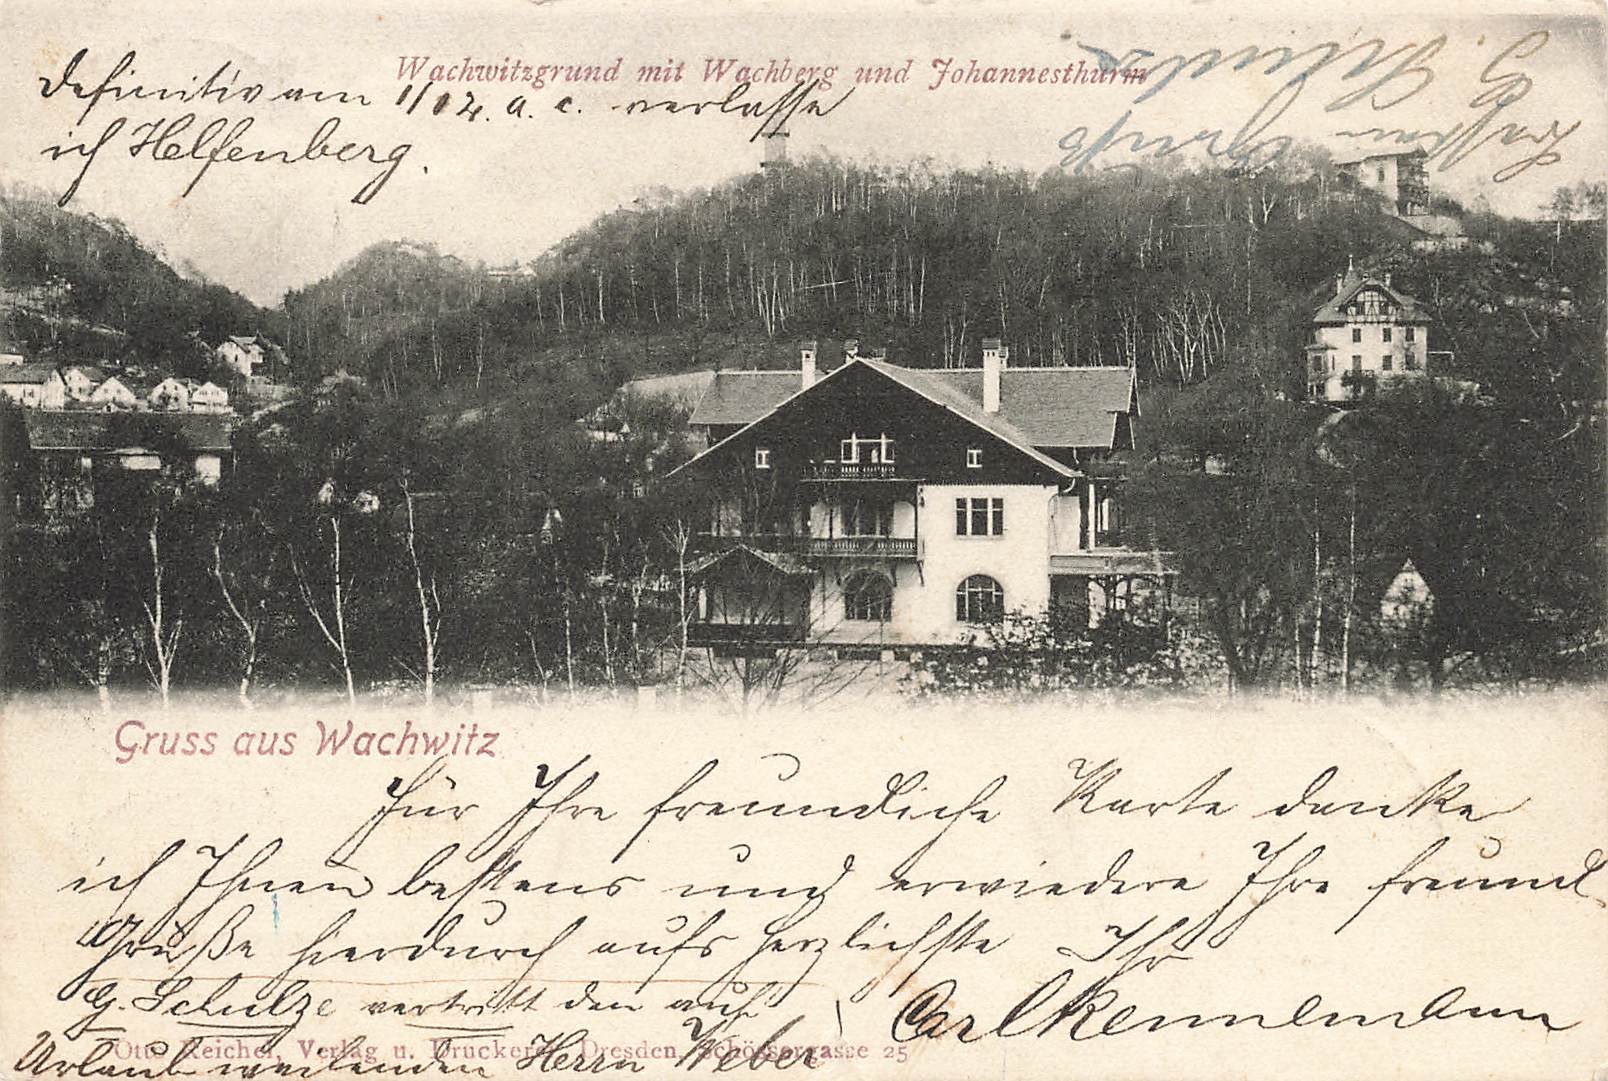 Wachwitzgrund mit Wachberg und Johannesthurm
Definitiv am 1/12. a. c. verlasse
ich Helfenberg.
G. Schulze
Gruss aus Wachwitz
Für Ihre freundliche Karte danke
ich Ihnen bestens und erwiedere Ihre freundl.
Grüße hierdurch aufs herzlichste Ihr
G. Schulze vertritt den auf Carl Kennemann
Urlaub weilenden Herrn Weber
Otto Reichel, Verlag u. Druckerei, Dresden, Schössergasse 25